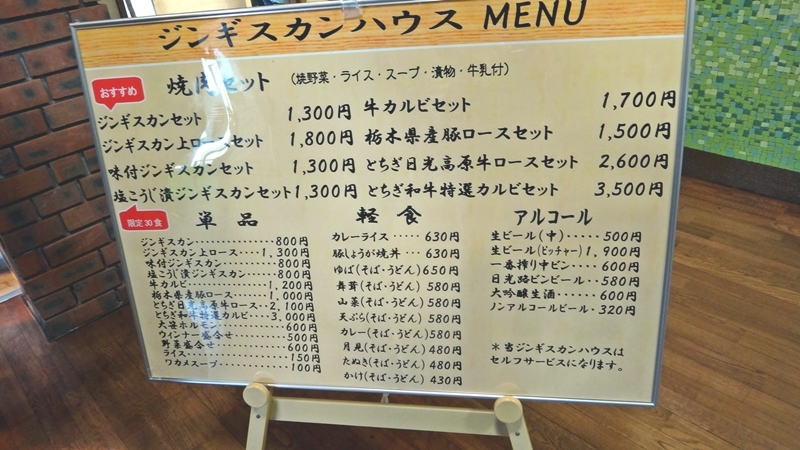 ジンギスカンハウス MENU
焼肉セット （焼野菜・ライス・スープ・漬物・牛乳付）
おすすめ
ジンギスカンセット 1,300円
ジンギスカン上ロースセット 1,800円
味付ジンギスカンセット 1,300円
塩こうじ漬ジンギスカンセット 1,300円
限定30食
牛カルビセット 1,700円
栃木県産豚ロースセット 1,500円
とちぎ日光高原牛ロースセット 2,600円
とちぎ和牛特選カルビセット 3,500円
単品
ジンギスカン・・・・・・・・・・・・800円
ジンギスカン上ロース・・・・1,300円
味付ジンギスカン・・・・・・・・800円
塩こうじ漬ジンギスカン・・・・800円
牛カルビ・・・・・・・・・・・・1,200円
栃木県産豚ロース・・・・1,000円
とちぎ日光高原牛ロース・・2,100円
とちぎ和牛特選カルビ・・・3,000円
大笹ホルモン・・・・・・・・600円
ウィンナー盛合せ・・・・・・500円
野菜盛合せ・・・・・・・・600円
ライス・・・・・・・・・・・・150円
ワカメスープ・・・・・・・・100円
軽食
カレーライス・・・・・630円
豚しょうが焼丼・・・630円
ゆば(そば・うどん)650円
舞茸(そば・うどん) 580円
山菜(そば・うどん) 580円
天ぷら(そば・うどん)580円
カレー(そば・うどん)580円
月見(そば・うどん) 480円
たぬき(そば・うどん) 480円
かけ(そば・うどん) 430円
アルコール
生ビール(中)・・・・・500円
生ビール(ピッチャー)1,900円
一番搾り中ビン・・・・600円
日光路ビンビール・・580円
大吟醸生酒・・・・・・600円
ノンアルコールビール・320円
＊当ジンギスカンハウスは
セルフサービスになります。